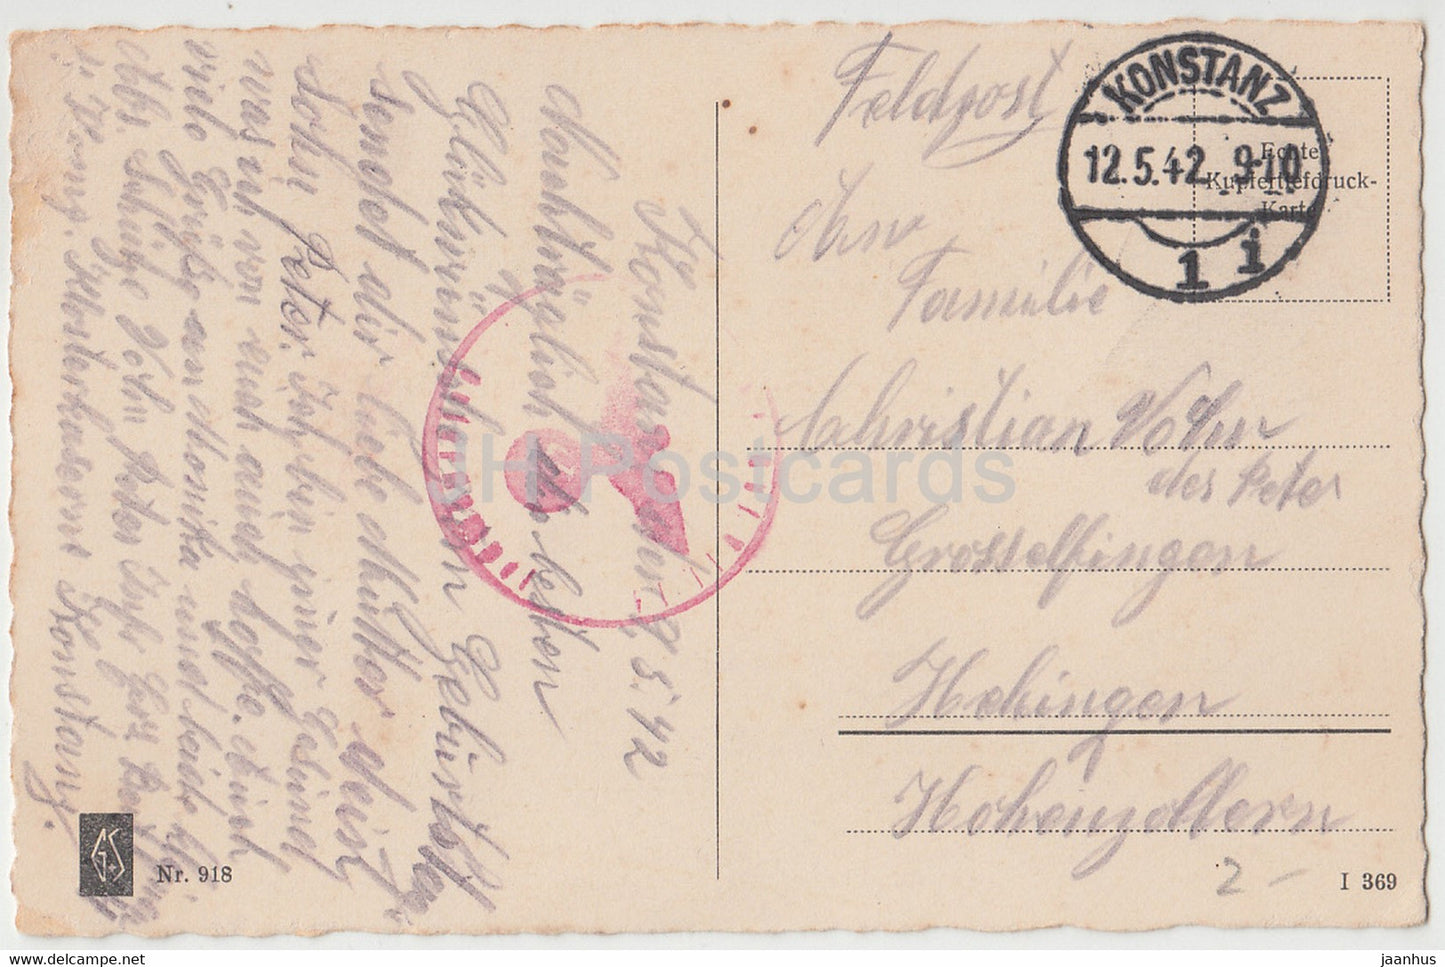 Feldpost
KONSTANZ
12.5.42. 9-10
1 i
Echte
Kupfertiefdruck-
Karte
An
Familie
Christian Vohn
des Peter
Grosselfingen
Hechingen
Hohenzollern
Konstanz den 9.5.42
Nachträglich die besten
Glückwünsche zum Geburtstag
sendet dir liebe Mutter dein
Sohn Peter. Ich bin hier Gesund
was ich von euch auch hoffe.
viele Grüße an Monika und
Abs. Schütze Peter
Konstanz.
Nr. 918
I 369
2 -
JH Postcards
www.delcampe.net
jaanhus